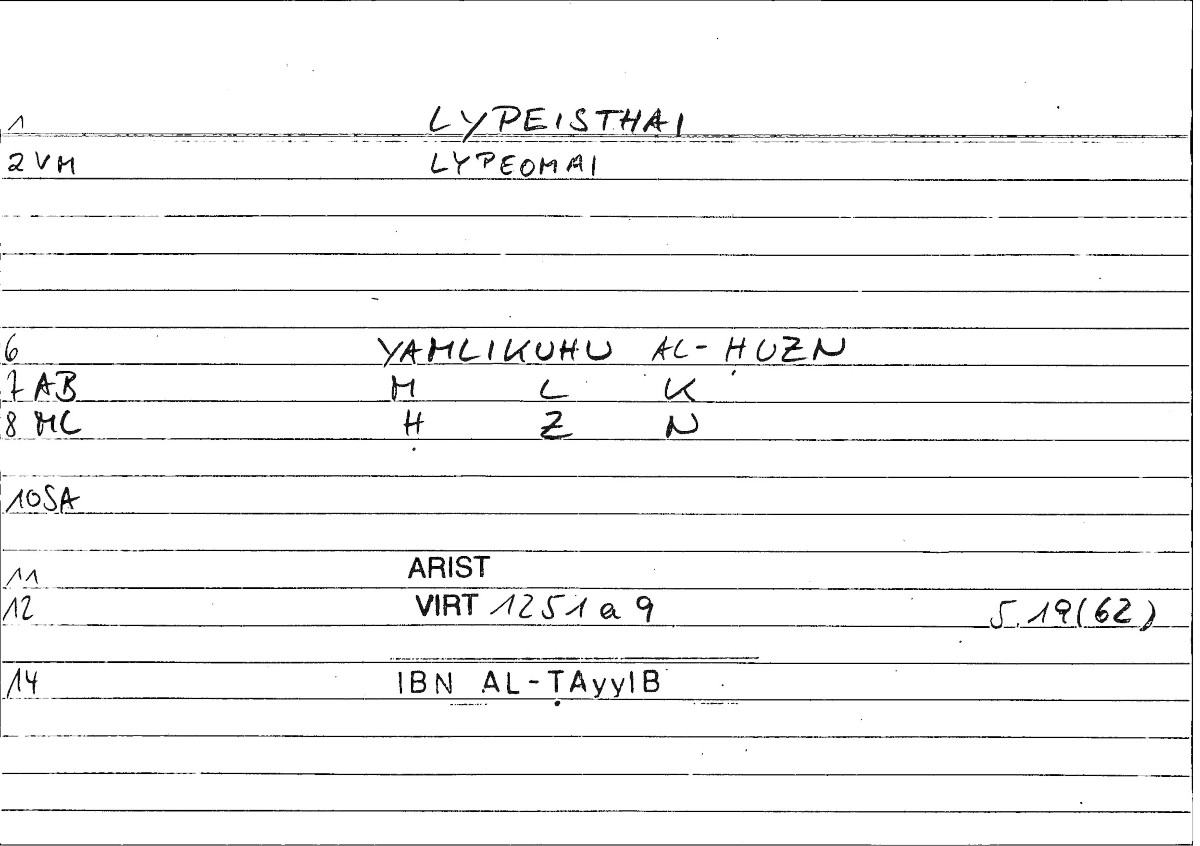 1 LYPEISTHAI
2 VM LYPEOMAI
6 YAMLIKUHU AL-ḤUZN
7 AB M L K
8 MC Ḥ Z N
10 SA
11 ARIST
12 VIRT 1251 a 9 5.19(62)
14 IBN AL-ṬAyyIB